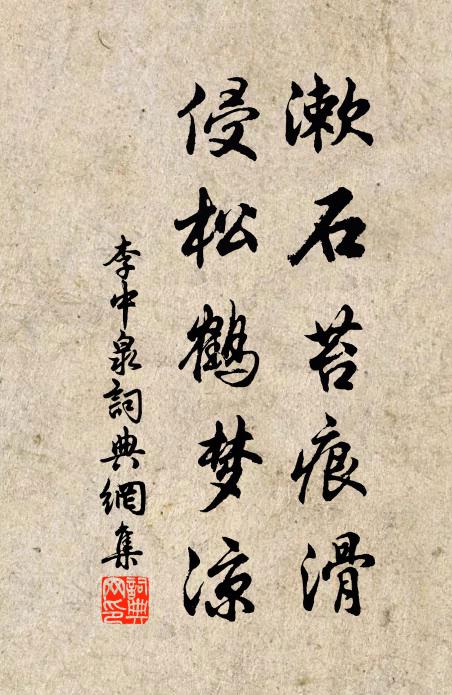 漱石苔痕滑
侵松鹤梦凉
李中泉詞典網集
詞典网印